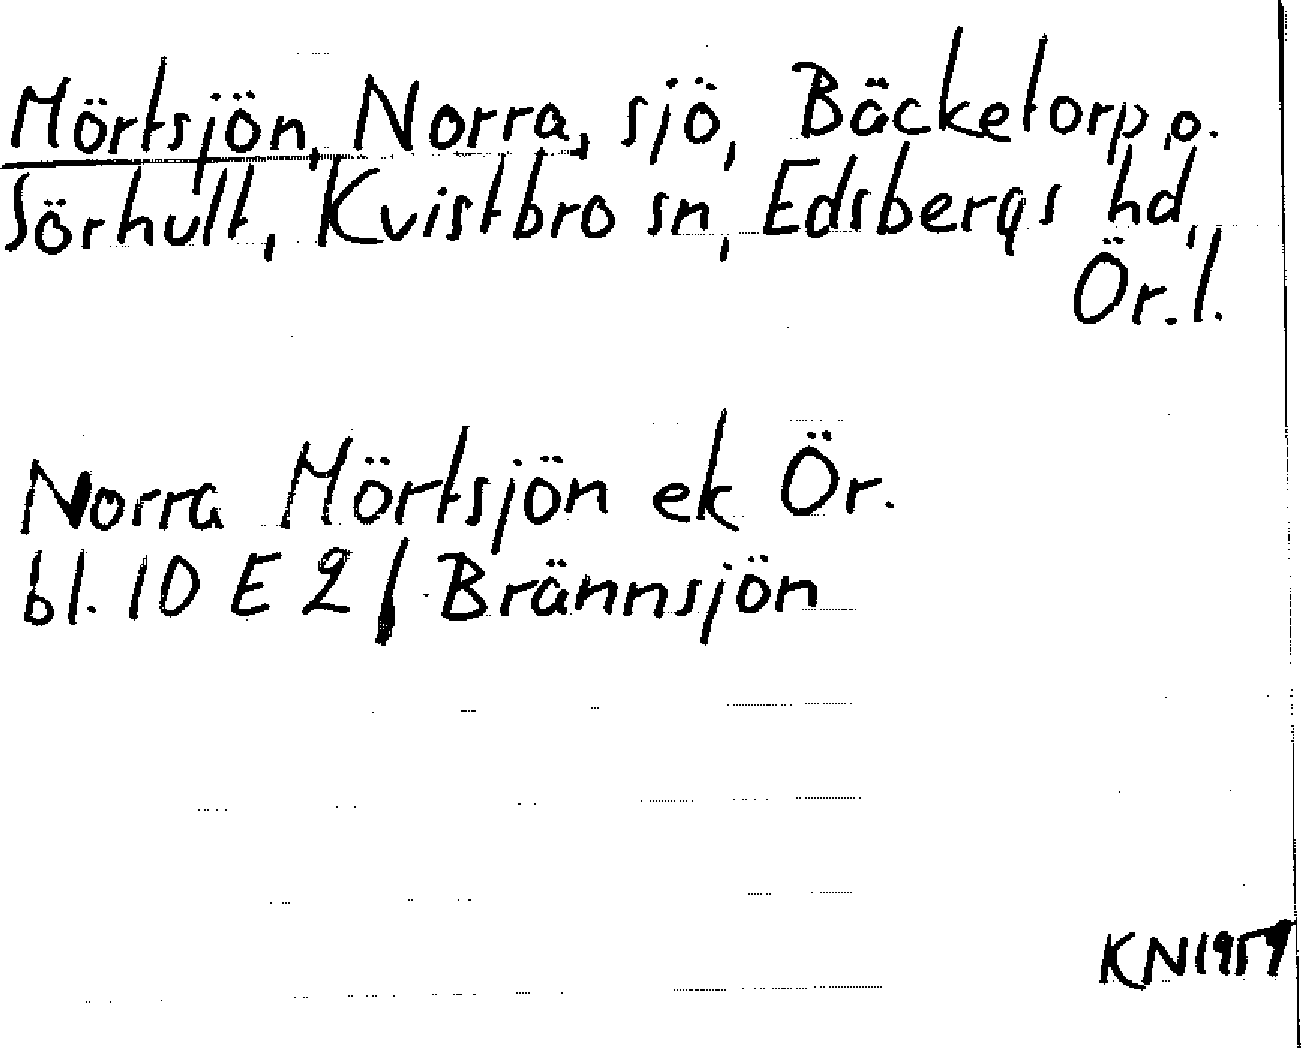 Mörtsjön, Norra, sjö, Bäcketorp o.
Sörhult, Kvistbro sn, Edsbergs hd,
Ör. l.
Norra Mörtsjön ek Ör.
bl. 10 E 2 f Brännsjön